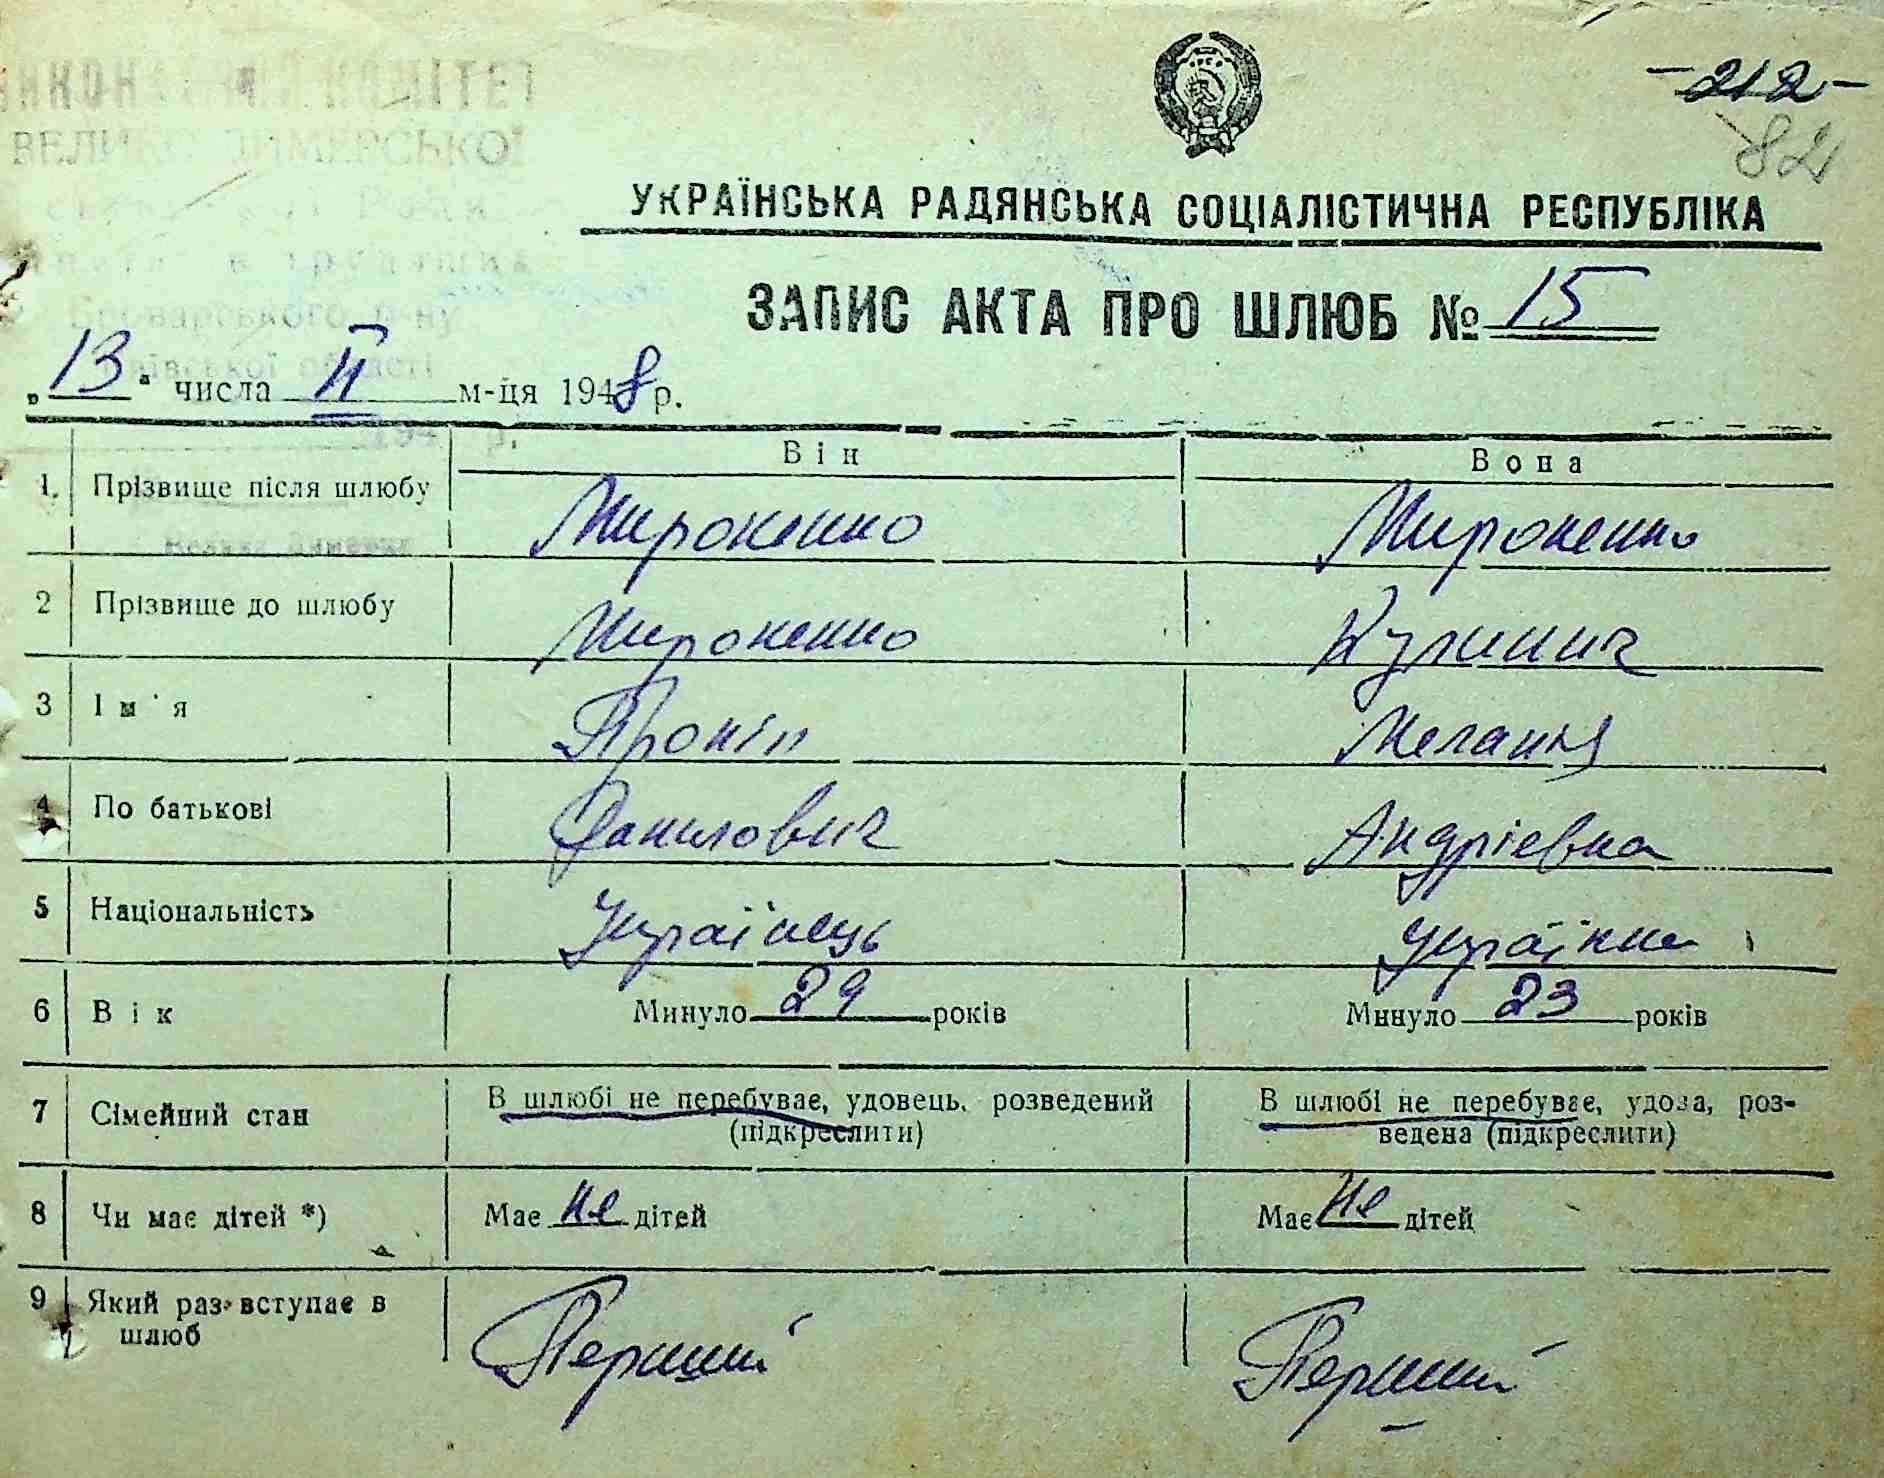 -212-
82
ВИКОНАВЧИЙ КОМІТЕТ
ВЕЛИКО ДИМЕРСЬКОЇ
Броварського р-ну
Київської області
194 р.
УКРАЇНСЬКА РАДЯНСЬКА СОЦІАЛІСТИЧНА РЕСПУБЛІКА
ЗАПИС АКТА ПРО ШЛЮБ № 15
„13" числа II м-ця 1948 р.
Він Вона
1. Прізвище після шлюбу Мироненко Мироненко
2 Прізвище до шлюбу Мироненко Кулинич
3 Ім'я Проніп Меланія
4 По батькові Данилович Андріевна
5 Національність Українець Українка
6 Вік Минуло 29 років Минуло 23 років
7 Сімейний стан В шлюбі не перебуває, удовець, розведений (підкреслити) В шлюбі не перебуває, удова, роз-
ведена (підкреслити)
8 Чи має дітей *) Має не дітей Має не дітей
9 Який раз вступає в шлюб Перший Перший